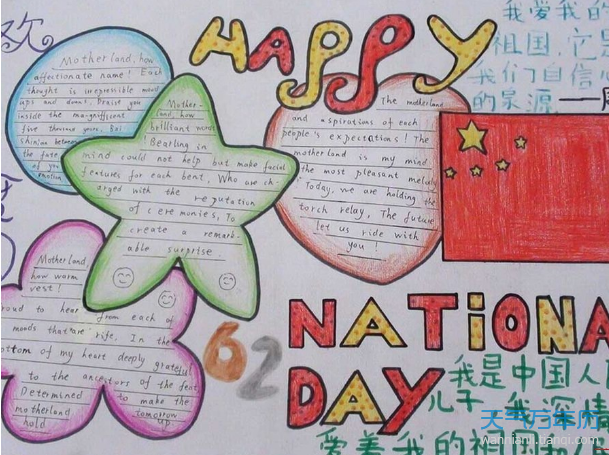 欢
HAPPY
我爱我的
祖国,它是
我们自信心
的泉源——周
Motherland, how
affectionate name! Each
thought is irrepressible mood
ups and downs. Praise you
inside the magnificent
five thousand years.
the fate
of you
Mother-
land, how
brilliant word!
Bearing in
mind could not help but make facial
features for each bent. Who are ch-
arged with the reputation
of ceremonies, To
create a remark-
able surprise.
The motherland
and aspirations of each
people's expectations! The
motherland is my mind
the most pleasant melody
Today, we are holding the
torch relay, The future
let us ride with
you!
Motherland,
how warm
vest!
roud to hear from each of
moods that are rife. In the
ottom of my heart deeply grateful
to the ancestors of the feat
Determined to make the
motherland tomorrow
hold up
62
NATIONA
DAY
我是中国人民
儿子 我深情
爱着我的祖国和人民
天气万年历
wannianli.tianqi.com